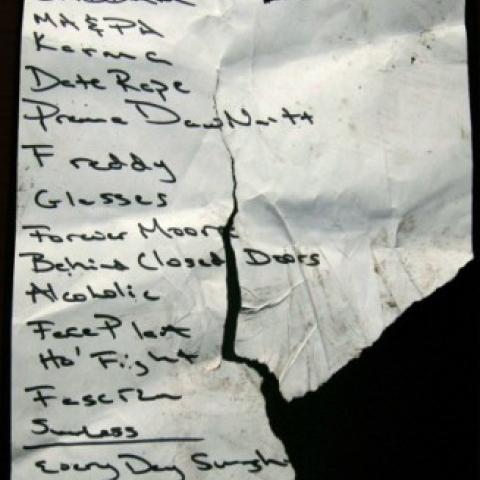 MA & PA
Karma
Date Rape
Freddy
Glasses
Forever Moore
Behind Closed Doors
Alcoholic
Face Plant
Ho' Fight
Sunless
Every Day Sunsh